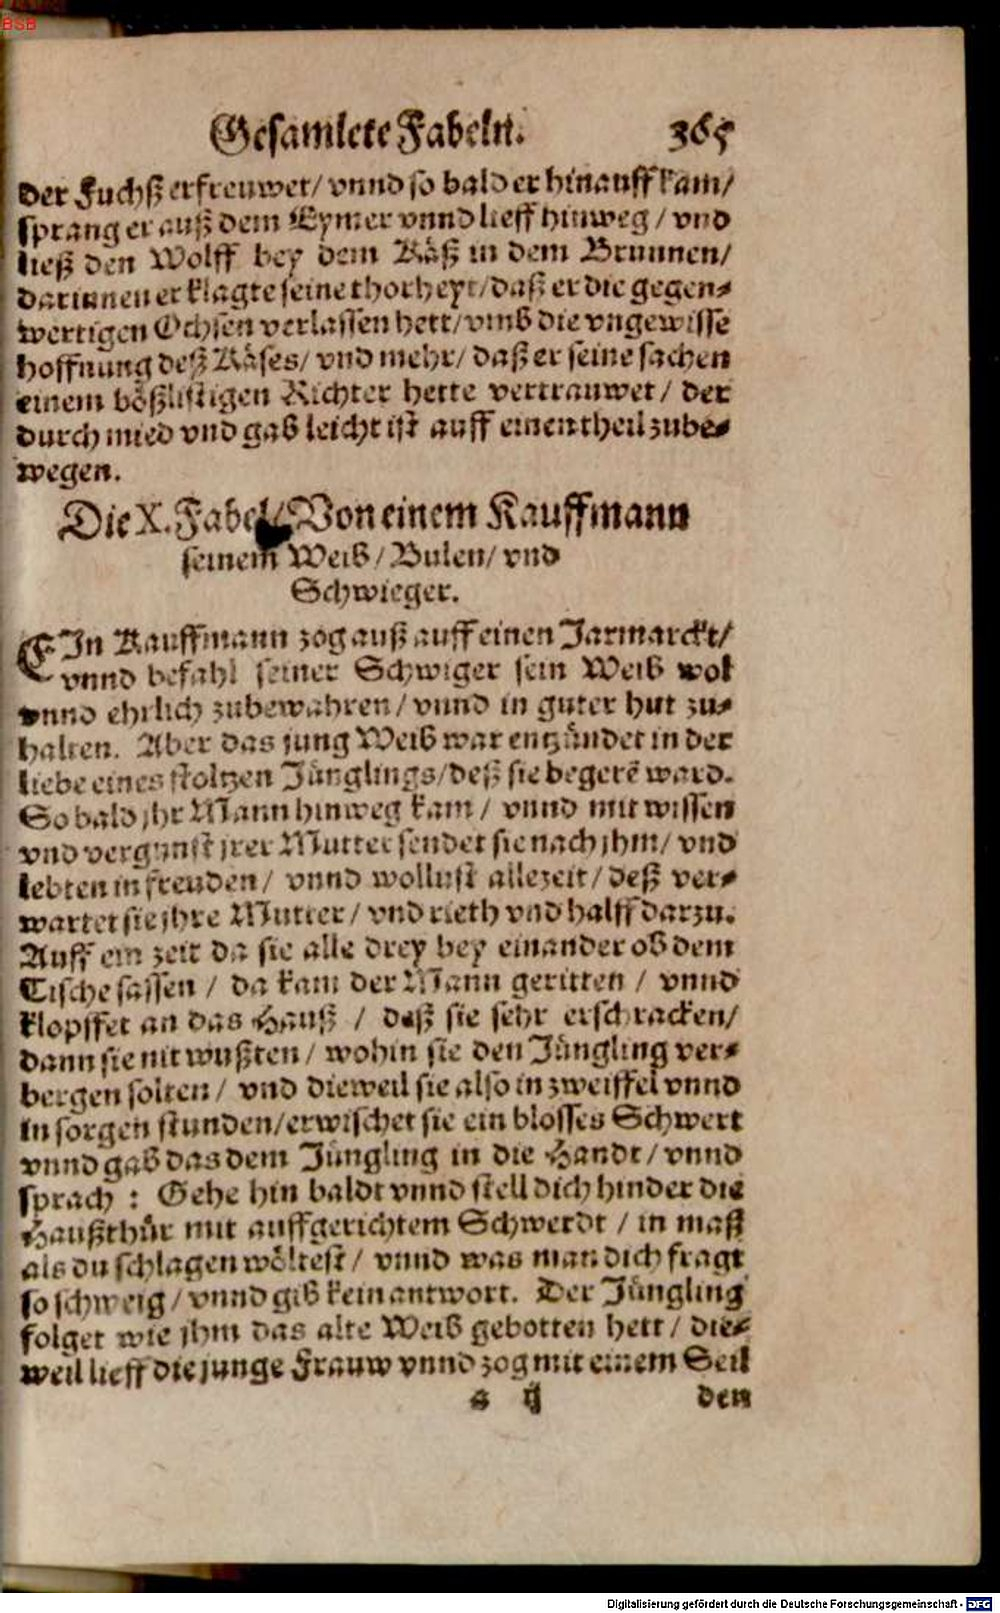 BSB
Gesamlete Fabeln. 365
der Fuchß erfreuwet/ vnnd so bald er hinauff kam/
sprang er auß dem Eymer vnnd lieff hinweg / vnd
ließ den Wolff bey dem Käß in dem Brunnen/
darinnen er klagte seine thorheyt/ daß er die gegen-
wertigen Ochsen verlassen hett/ vmb die vngewisse
hoffnung deß Käses/ vnd mehr/ daß er seine sachen
einem bößlistigen Richter hette vertrauwet / der
durch mied vnd gab leicht ist auff einen theil zube-
wegen.
Die X. Fabel/ Von einem Kauffmann
seinem Weib / Bulen/ vnd
Schwieger.
EIn Kauffmann zog auß auff einen Jarmarckt/
vnnd befahl seiner Schwiger sein Weib wol
vnnd ehrlich zubewahren / vnnd in guter hut zu-
halten. Aber das jung Weib war entzündet in der
liebe eines stoltzen Jünglings/ deß sie begerẽ ward.
So bald jhr Mann hinweg kam / vnnd mit wissen
vnd vergunst jrer Mutter sendet sie nach jhm/ vnd
lebten in freuden / vnnd wollust allezeit / deß ver-
wartet sie jhre Mutter / vnd rieth vnd halff darzu.
Auff ein zeit da sie alle drey bey einander ob dem
Tische sassen / da kam der Mann geritten / vnnd
klopffet an das Hauß / deß sie sehr erschracken/
dann sie nit wußten / wohin sie den Jüngling ver-
bergen solten / vnd dieweil sie also in zweiffel vnnd
in sorgen stunden/ erwischet sie ein blosses Schwert
vnnd gab das dem Jüngling in die Handt / vnnd
sprach : Gehe hin baldt vnnd stell dich hinder die
Haußthür mit auffgerichtem Schwerdt / in maß
als du schlagen wöltest / vnnd was man dich fragt
so schweig / vnnd gib kein antwort. Der Jüngling
folget wie jhm das alte Weib gebotten hett / die-
weil lieff die junge Frauw vnnd zog mit einem Seil
a ij den
Digitalisierung gefördert durch die Deutsche Forschungsgemeinschaft - DFG